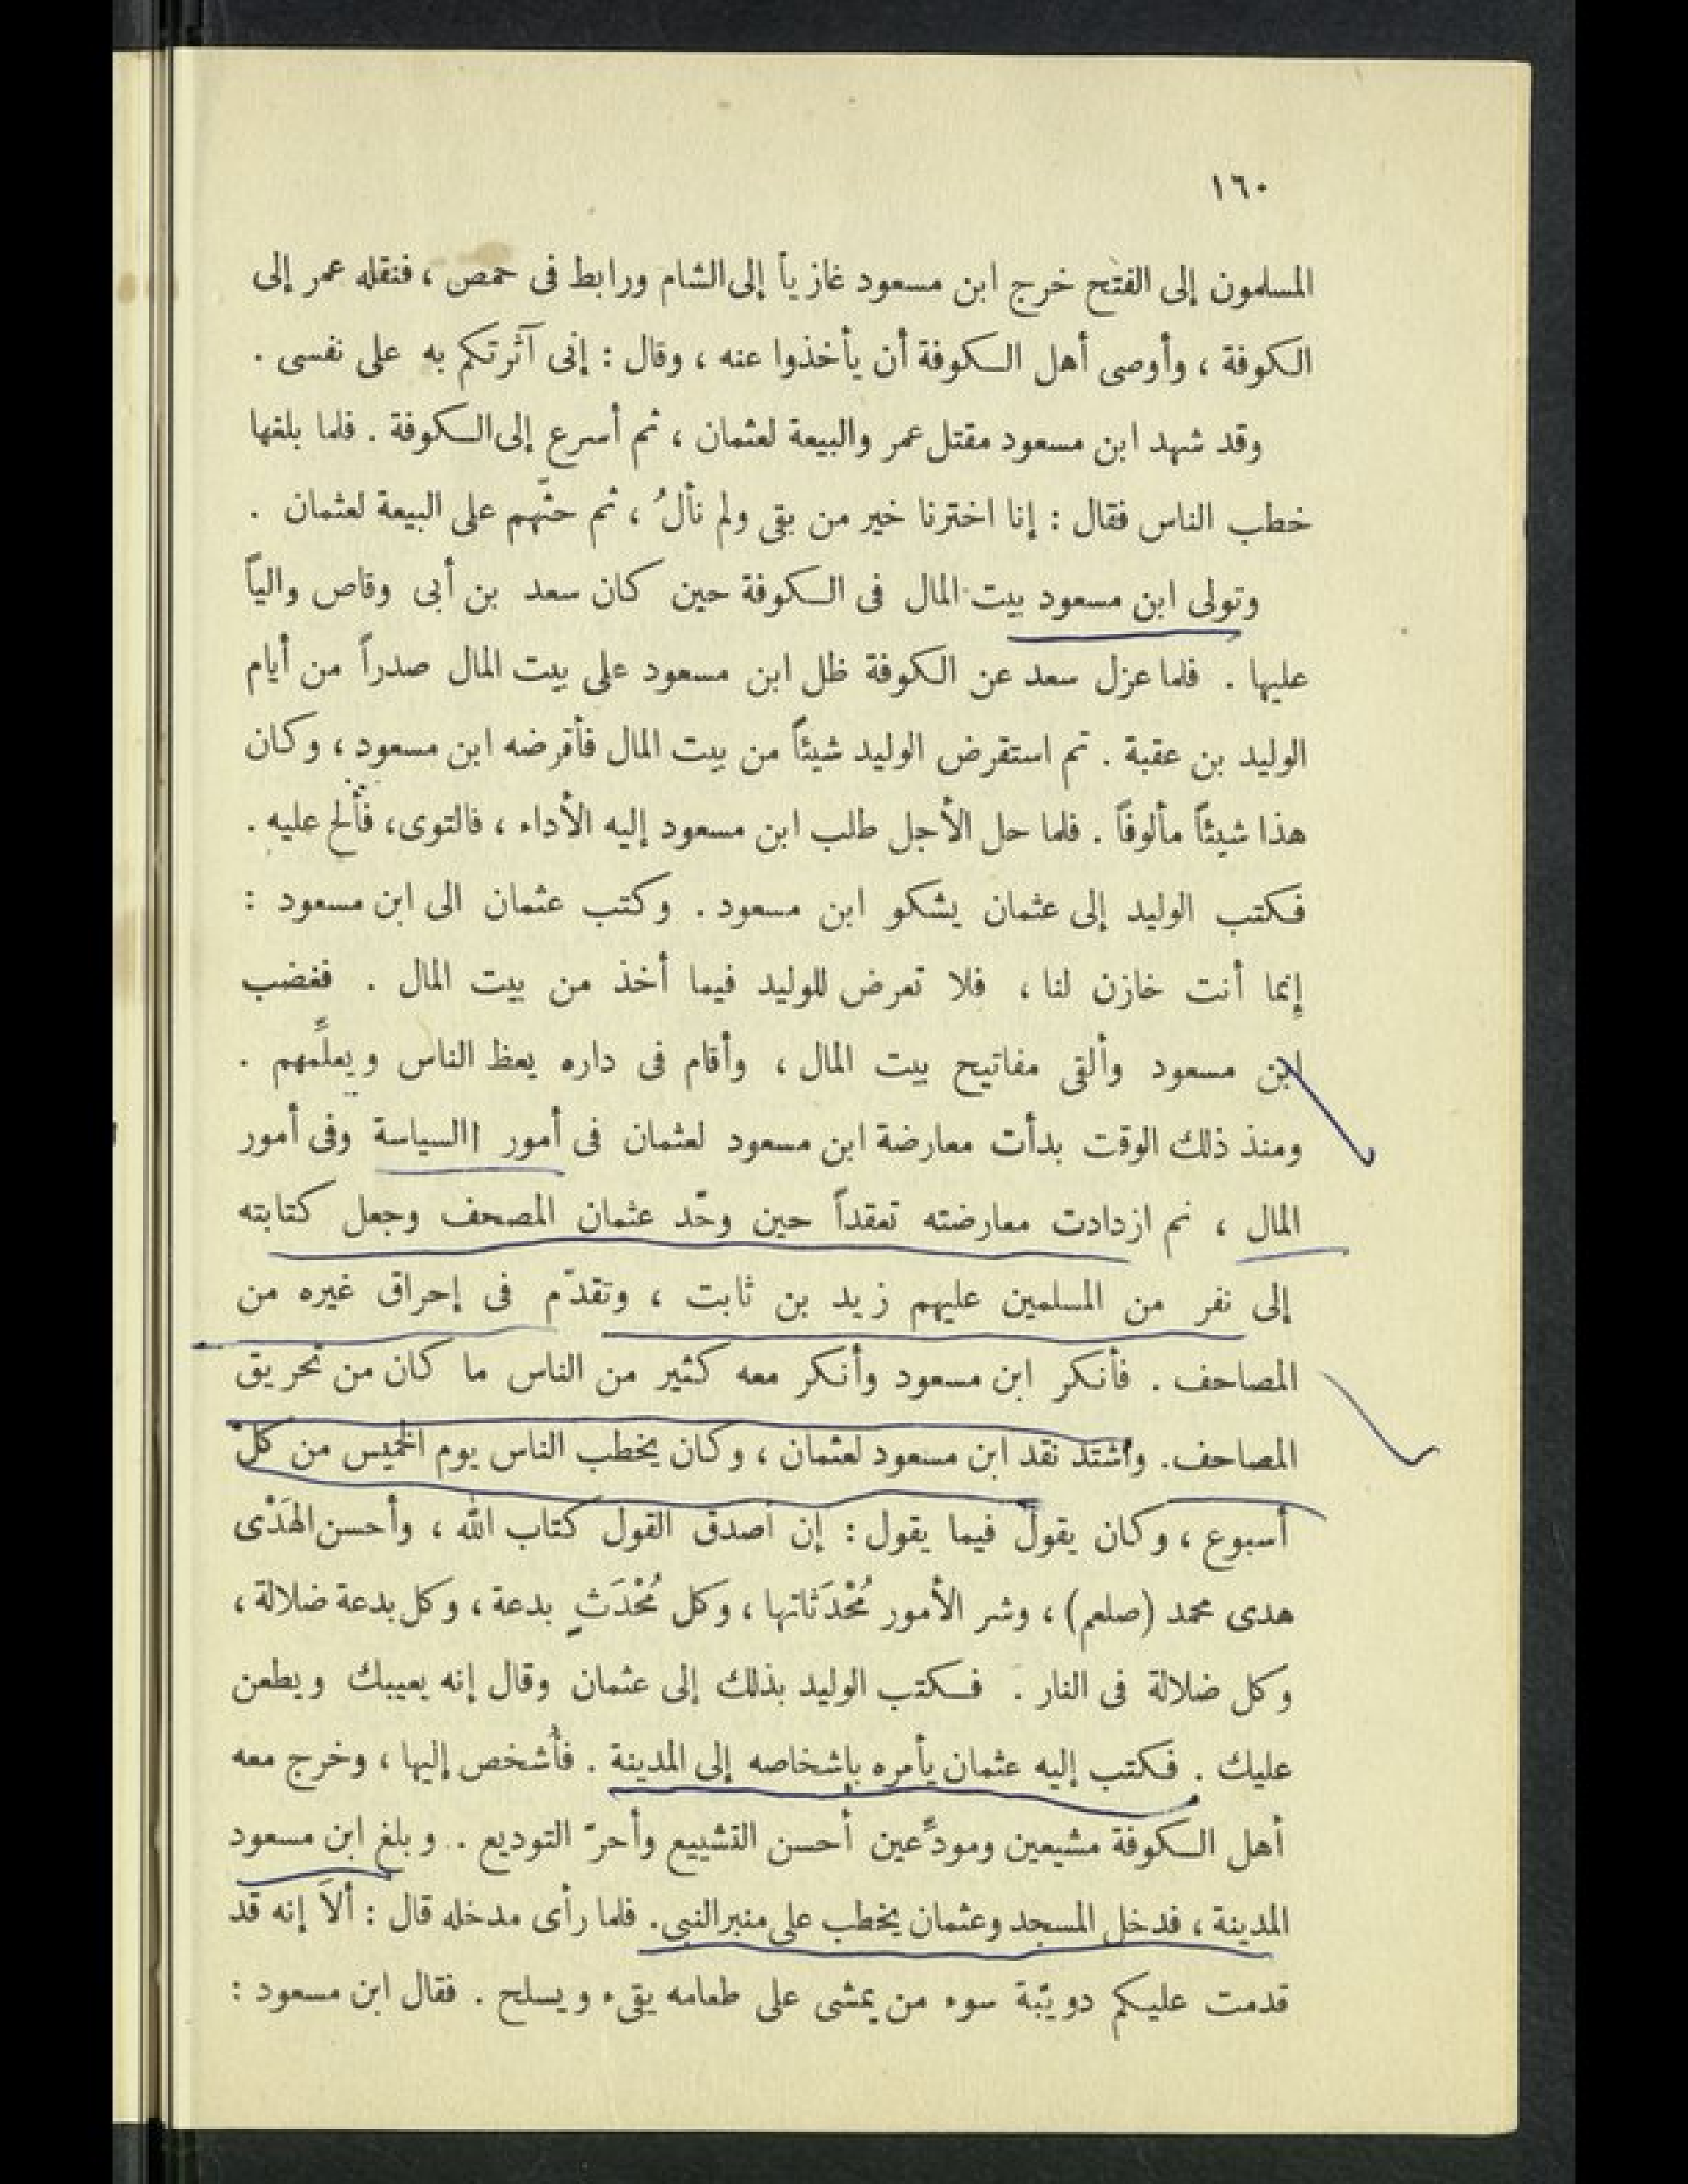 ١٦٠
المسلمون إلى الفتح خرج ابن مسعود غازياً إلى الشام ورابط فى حمص ، فنقله عمر إلى
الكوفة ، وأوصى أهل الكوفة أن يأخذوا عنه ، وقال : إنى آثرتكم به على نفسى .
وقد شهد ابن مسعود مقتل عمر والبيعة لعثمان ، ثم أسرع إلى الكوفة . فلما بلغها
خطب الناس فقال : إنا اخترنا خير من بقى ولم نألُ ، ثم حثّهم على البيعة لعثمان .
وتولى ابن مسعود بيت المال فى الكوفة حين كان سعد بن أبى وقاص والياً
عليها . فلما عزل سعد عن الكوفة ظل ابن مسعود على بيت المال صدراً من أيام
الوليد بن عقبة . ثم استقرض الوليد شيئاً من بيت المال فأقرضه ابن مسعود ، وكان
هذا شيئاً مألوفاً . فلما حل الأجل طلب ابن مسعود إليه الأداء ، فالتوى ، فألح عليه .
فكتب الوليد إلى عثمان يشكو ابن مسعود . وكتب عثمان الى ابن مسعود :
إنما أنت خازن لنا ، فلا تعرض للوليد فيما أخذ من بيت المال . فغضب
ابن مسعود وألقى مفاتيح بيت المال ، وأقام فى داره يعظ الناس ويعلّمهم .
ومنذ ذلك الوقت بدأت معارضة ابن مسعود لعثمان فى أمور االسياسة وفى أمور
المال ، ثم ازدادت معارضته تعقداً حين وحّد عثمان المصحف وجعل كتابته
إلى نفر من المسلمين عليهم زيد بن ثابت ، وتقدّم فى إحراق غيره من
المصاحف . فأنكر ابن مسعود وأنكر معه كثير من الناس ما كان من تحريق
المصاحف . واشتد نقد ابن مسعود لعثمان ، وكان يخطب الناس يوم الخميس من كل
أسبوع ، وكان يقول فيما يقول : إن أصدق القول كتاب الله ، وأحسن الهَدْى
هدى محمد (صلعم) ، وشر الأمور مُحْدَثاتها ، وكل مُحْدَثٍ بدعة ، وكل بدعة ضلالة ،
وكل ضلالة فى النار . فكتب الوليد بذلك إلى عثمان وقال إنه يعيبك ويطعن
عليك . فكتب إليه عثمان يأمره بإشخاصه إلى المدينة . فأُشخص إليها ، وخرج معه
أهل الكوفة مشيعين ومودِّعين أحسن التشييع وأحرّ التوديع . وبلغ ابن مسعود
المدينة ، فدخل المسجد وعثمان يخطب على منبر النبى . فلما رأى مدخله قال : ألاَ إنه قد
قدمت عليكم دويّبة سوء من يمشى على طعامه يقىء ويسلح . فقال ابن مسعود :